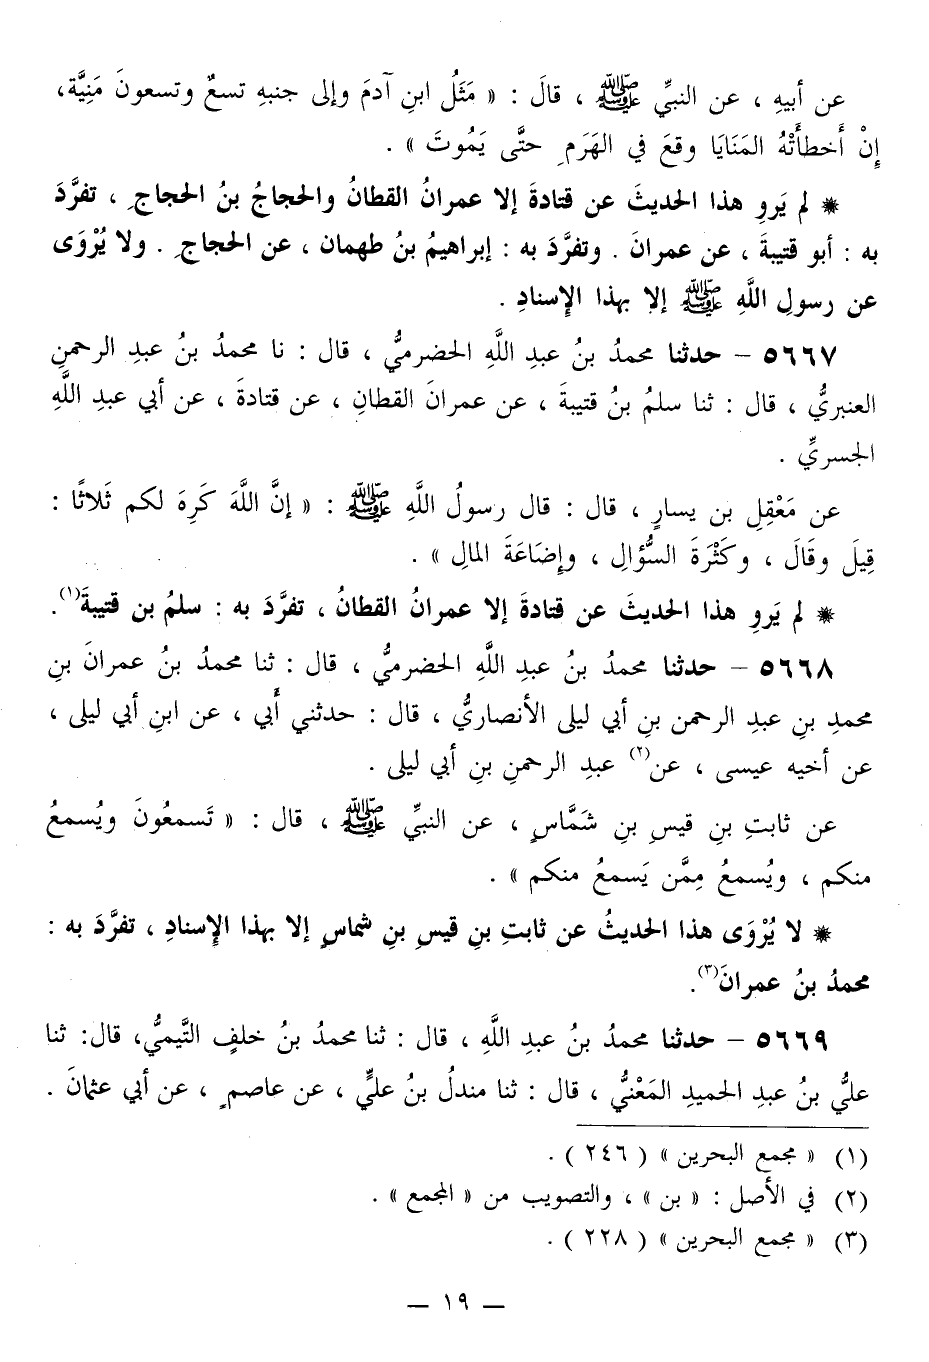 عن أبيهِ ، عن النبيِّ ﷺ ، قالَ : « مَثَلُ ابنِ آدمَ وإلى جنبهِ تسعٌ وتسعونَ مَنِيَّة،
إنْ أَخطأَتْهُ المَنَايَا وقعَ في الهَرَمِ حتَّى يَمُوتَ » .
* لم يَروِ هذا الحديثَ عن قتادةَ إلا عمرانُ القطانُ والحجاجُ بنُ الحجاجِ ، تفرَّدَ
به : أبو قتيبةَ ، عن عمرانَ . وتفرَّدَ به : إبراهيمُ بنُ طهمان ، عن الحجاجِ . ولا يُرْوَى
عن رسولِ اللَّهِ ﷺ إلا بهذا الإسنادِ .
٥٦٦٧ – حدثنا محمدُ بنُ عبدِ اللَّهِ الحضرميُّ ، قال : نا محمدُ بنُ عبدِ الرحمنِ
العنبريُّ ، قال : ثنا سلمُ بنُ قتيبةَ ، عن عمرانَ القطانِ ، عن قتادةَ ، عن أبي عبدِ اللَّهِ
الجسريِّ .
عن مَعْقِلِ بن يسارٍ ، قال : قال رسولُ اللَّهِ ﷺ : « إنَّ اللَّهَ كَرِهَ لكم ثَلاثًا :
قِيلَ وقَالَ ، وكَثْرَةَ السُّؤالِ ، وإضَاعَةَ المالِ » .
* لم يَروِ هذا الحديثَ عن قتادةَ إلا عمرانُ القطانُ ، تفرَّدَ به : سلمُ بن قتيبةَ(١).
٥٦٦٨ – حدثنا محمدُ بنُ عبدِ اللَّهِ الحضرميُّ ، قال : ثنا محمدُ بنُ عمرانَ بنِ
محمدِ بنِ عبدِ الرحمن بنِ أبي ليلى الأنصاريُّ ، قال : حدثني أَبي ، عن ابنِ أبي ليلى ،
عن أخيه عيسى ، عن(٢) عبدِ الرحمنِ بنِ أبي ليلى .
عن ثابتِ بنِ قيسِ بنِ شَمَّاسٍ ، عن النبيِّ ﷺ ، قال : « تَسمعُونَ ويُسمعُ
منكم ، ويُسمعُ مِمَّن يَسمعُ منكم » .
* لا يُرْوَى هذا الحديثُ عن ثابتِ بنِ قيسِ بنِ شماسٍ إلا بهذا الإسنادِ ، تفرَّدَ به :
محمدُ بنُ عمرانَ(٣).
٥٦٦٩ – حدثنا محمدُ بنُ عبدِ اللَّهِ ، قال : ثنا محمدُ بنُ خلفٍ التَّيميُّ، قال: ثنا
عليُّ بنُ عبدِ الحميدِ المَعْنيُّ ، قال : ثنا مندلُ بنُ عليٍّ ، عن عاصمٍ ، عن أبي عثمانَ .
(١) « مجمع البحرين » ( ٢٤٦ ) .
(٢) في الأصل : « بن » ، والتصويب من « المجمع » .
(٣) « مجمع البحرين » ( ٢٢٨ ) .
– ١٩ –